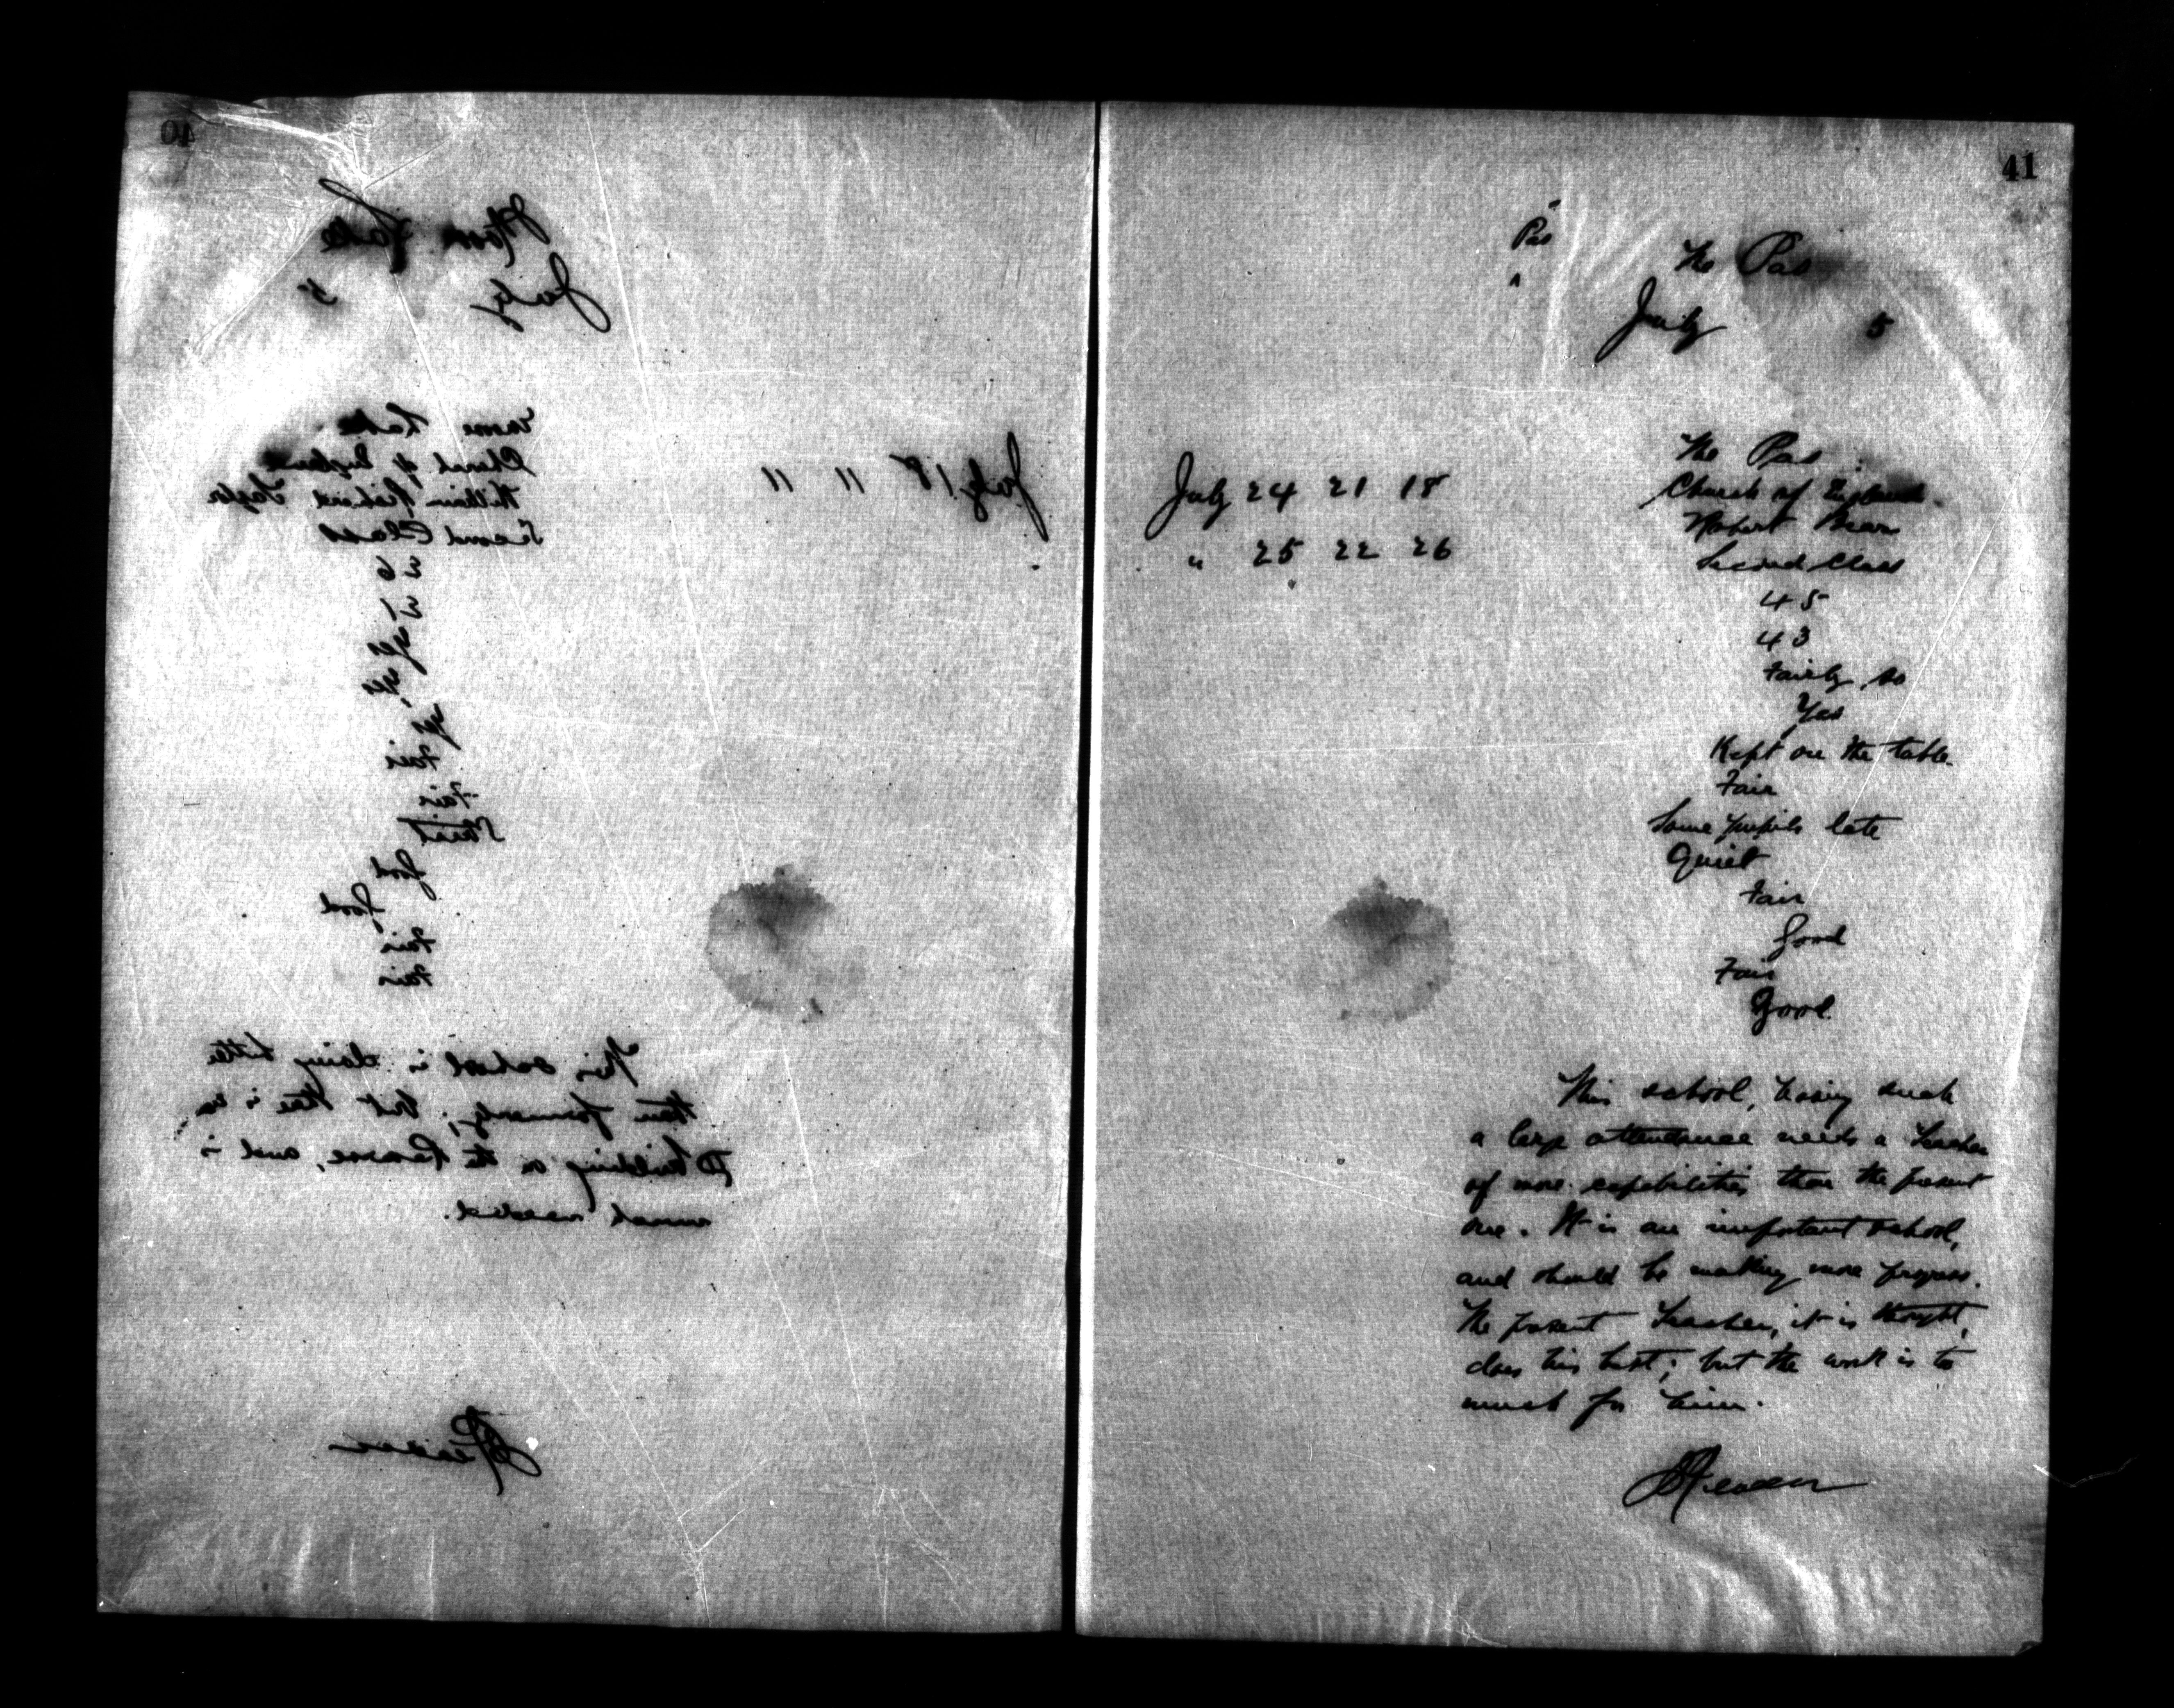 40
Moose Lake
July 5
Moose Lake
Church of England
William Richard Taylor
Second Class
26
21
yes
yes
yes
Fair
Fair
Good
Good
Fair
Fair
July 18 11 11
This school is doing better
than formerly; but there is no
building on the Reserve, and is
much needed.
41
Pas
The Pas
July 5
July 24 21 18
" 25 22 26
The Pas
Church of England
Robert Bear
Second Class
45
43
Fairly so
Yes
Kept on the table
Fair
Some pupils late
Quiet
Fair
Good
Fair
Good
This school, having such
a large attendance needs a Teacher
of more capabilities than the present
one. It is an important school,
and should be making more progress.
The present Teacher, it is thought,
does his best; but the work is to
much for him.